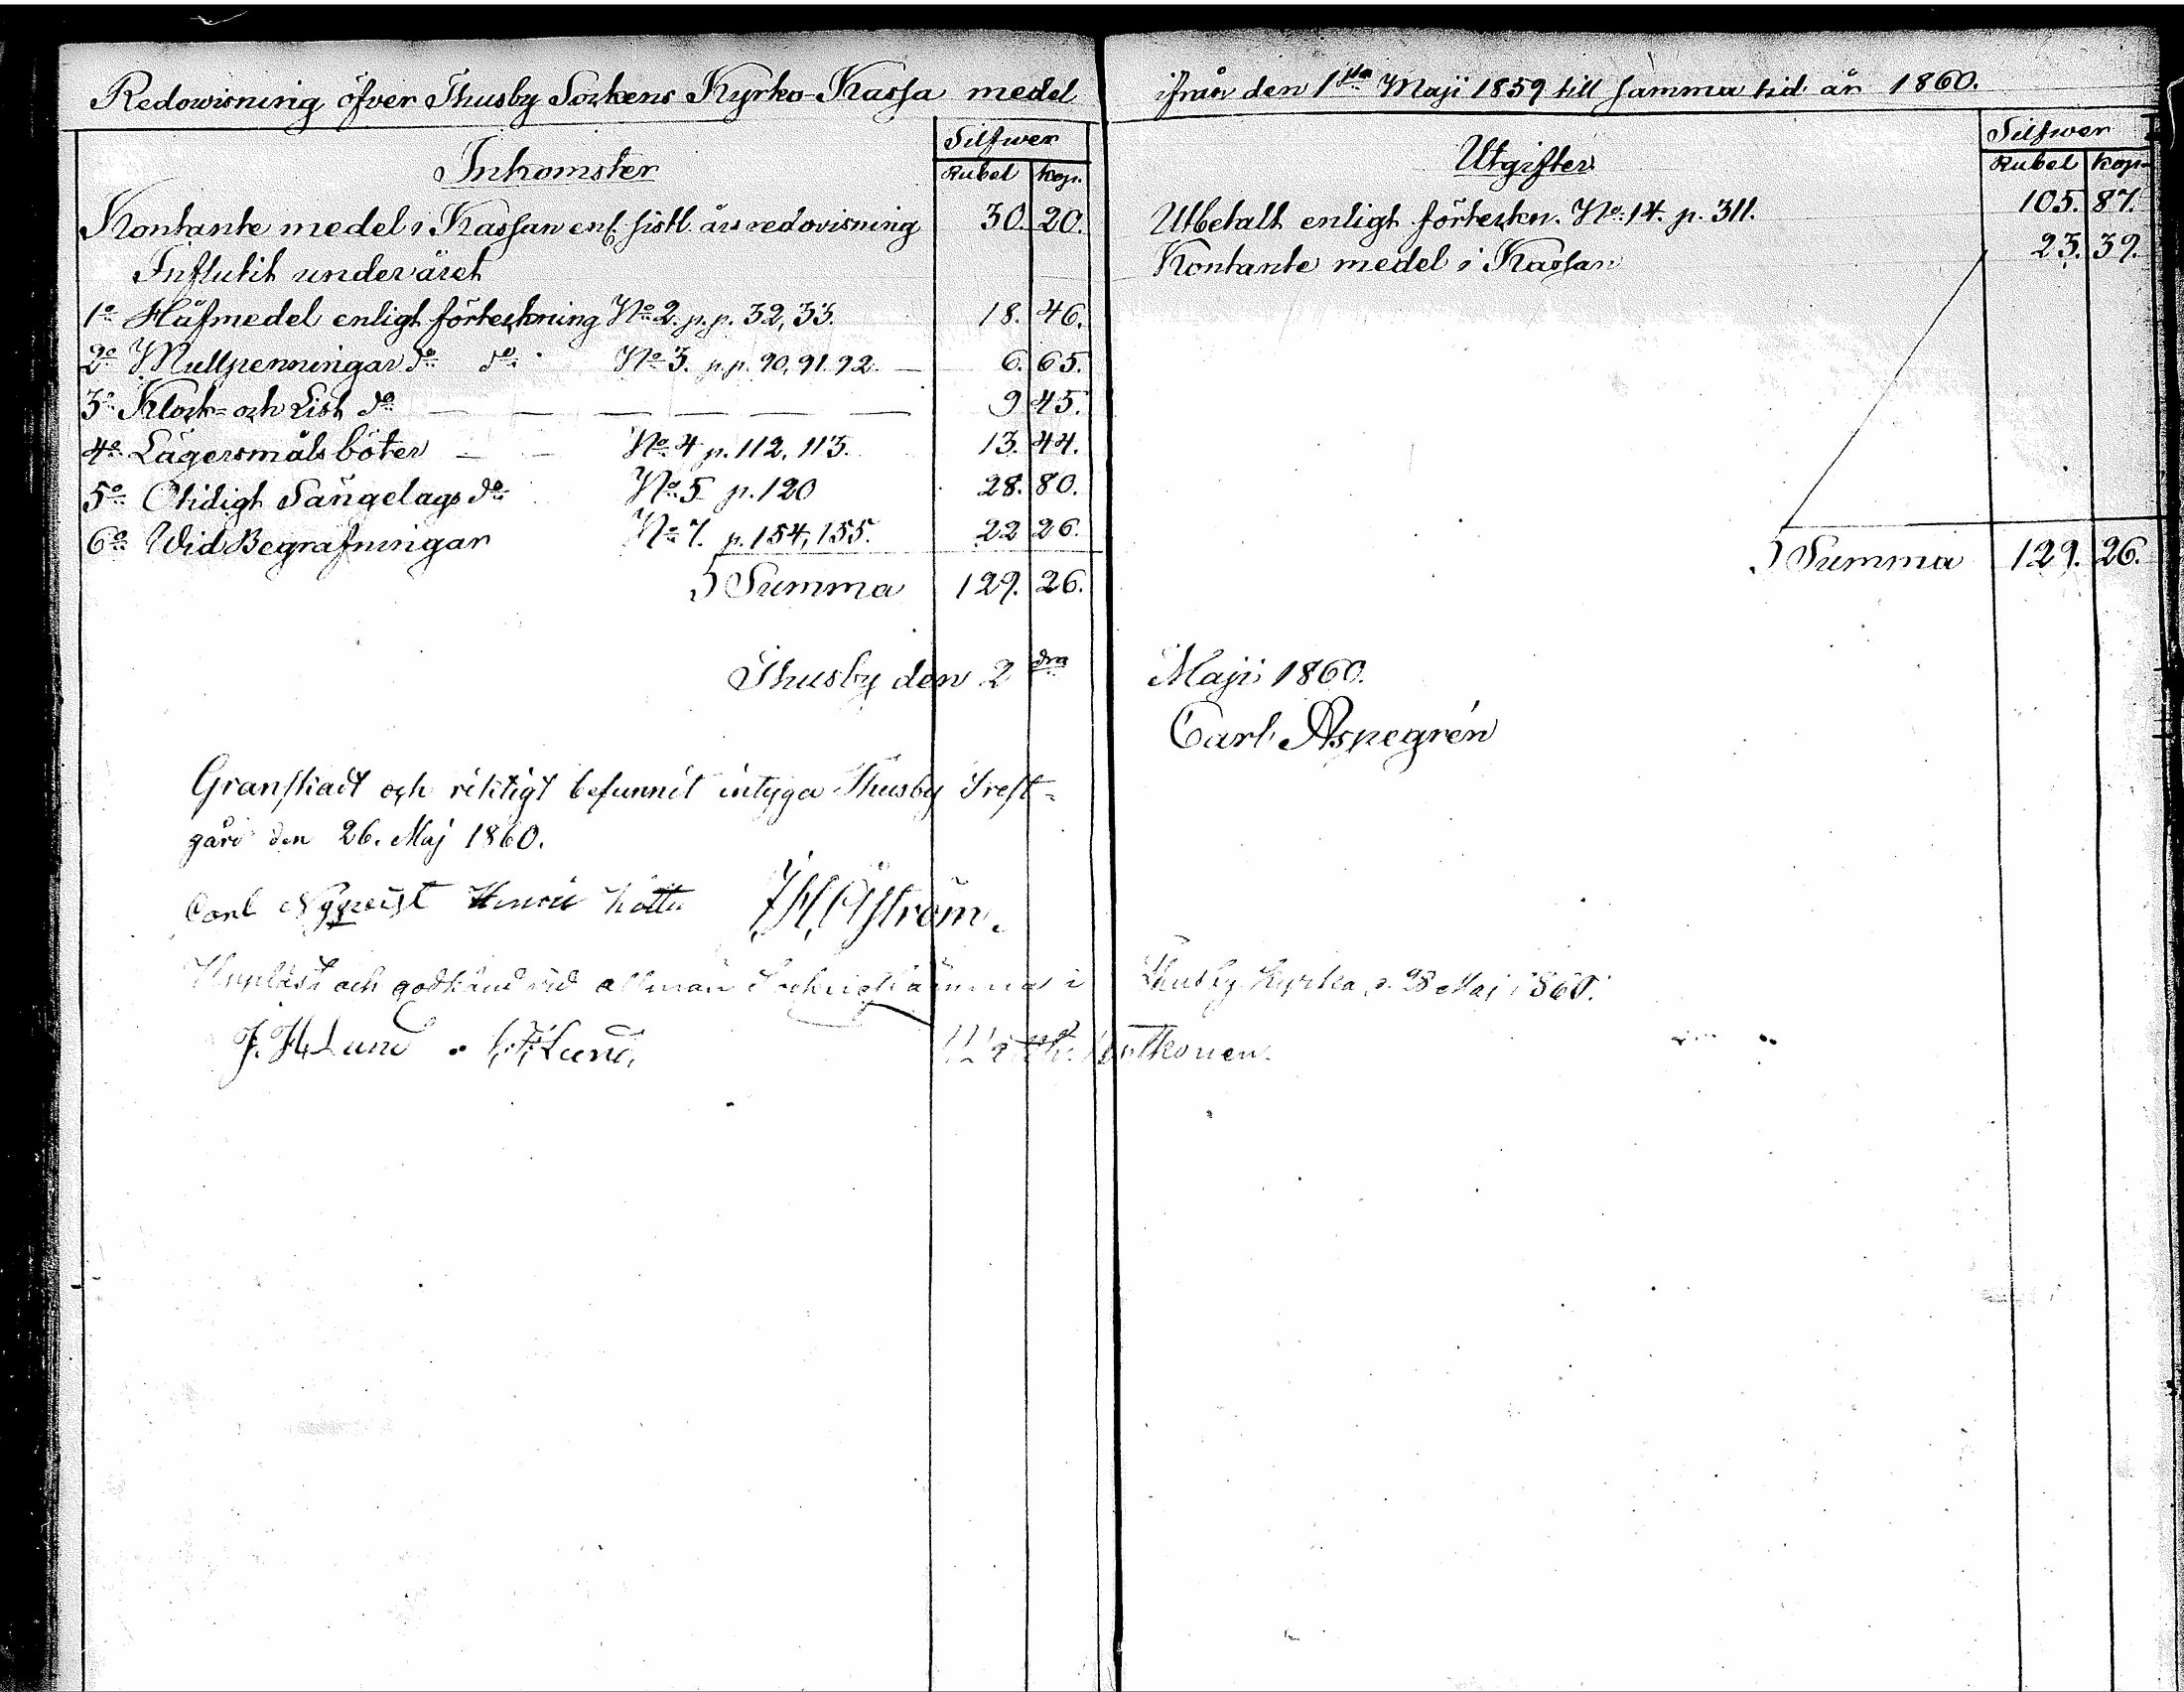 Redowisning öfver Thusby Sockens Kyrko-Kassa medel
Inkomster
Silfwer
Rubel kop.
Kontante medel i Kassan enl. sistl. års redovisning 30. 20.
Influtit under året
1o Håfmedel enligt förteckning No 2. p.p. 32, 33. 18. 46.
2o Mullpenningar do do No 3. p.p. 90, 91. 92. — 6. 65.
3o Klock- och List do — — — — — — 9 45.
4o Lägersmåls böter — — No 4 p. 112, 113. 13. 44.
5o Otidigt Sängelags do No 5 p. 120 28. 80.
6o Wid Begrafningar No 7. p. 154, 155. 22 26.
Summa 129. 26.
Thusby den 2dra
Granskadt och riktigt befunnit intyga Thusby Prest-
gård den 26. Maj 1860.
Carl Nyqvist Henric
Åström.
Uppläst och godkänd vid allmän Sockenstämma i
J. H. Lund Lund,
ifrån den 1sta Maji 1859 till samma tid år 1860.
Utgifter
Silfwer
Rubel kop.
Utbetalt enligt förteckn. No 14. p. 311. 105. 87.
Kontante medel i Kassan 23. 39.
Summa 129. 26.
Maji 1860.
Carl Aspegrén
Thusby Kyrka, d. 28 Maj 1860.